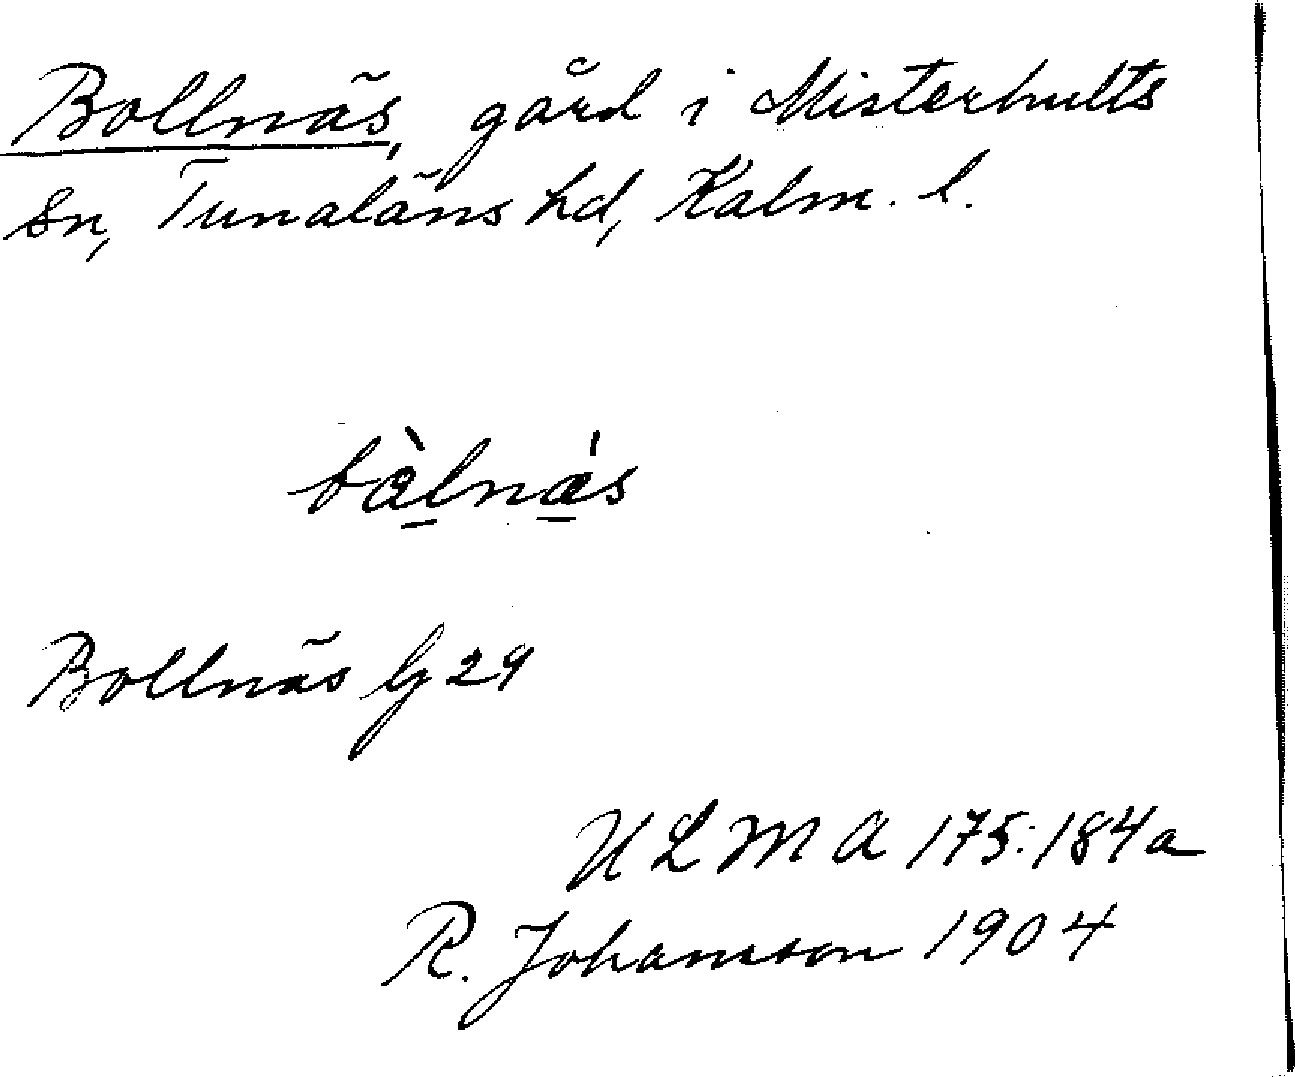 Bollnäs, gård i Misterhults
sn, Tunaläns hd, Kalm. l.
bålnäs
Bollnäs G 29
ULMA 175:184a
R. Johanson 1904